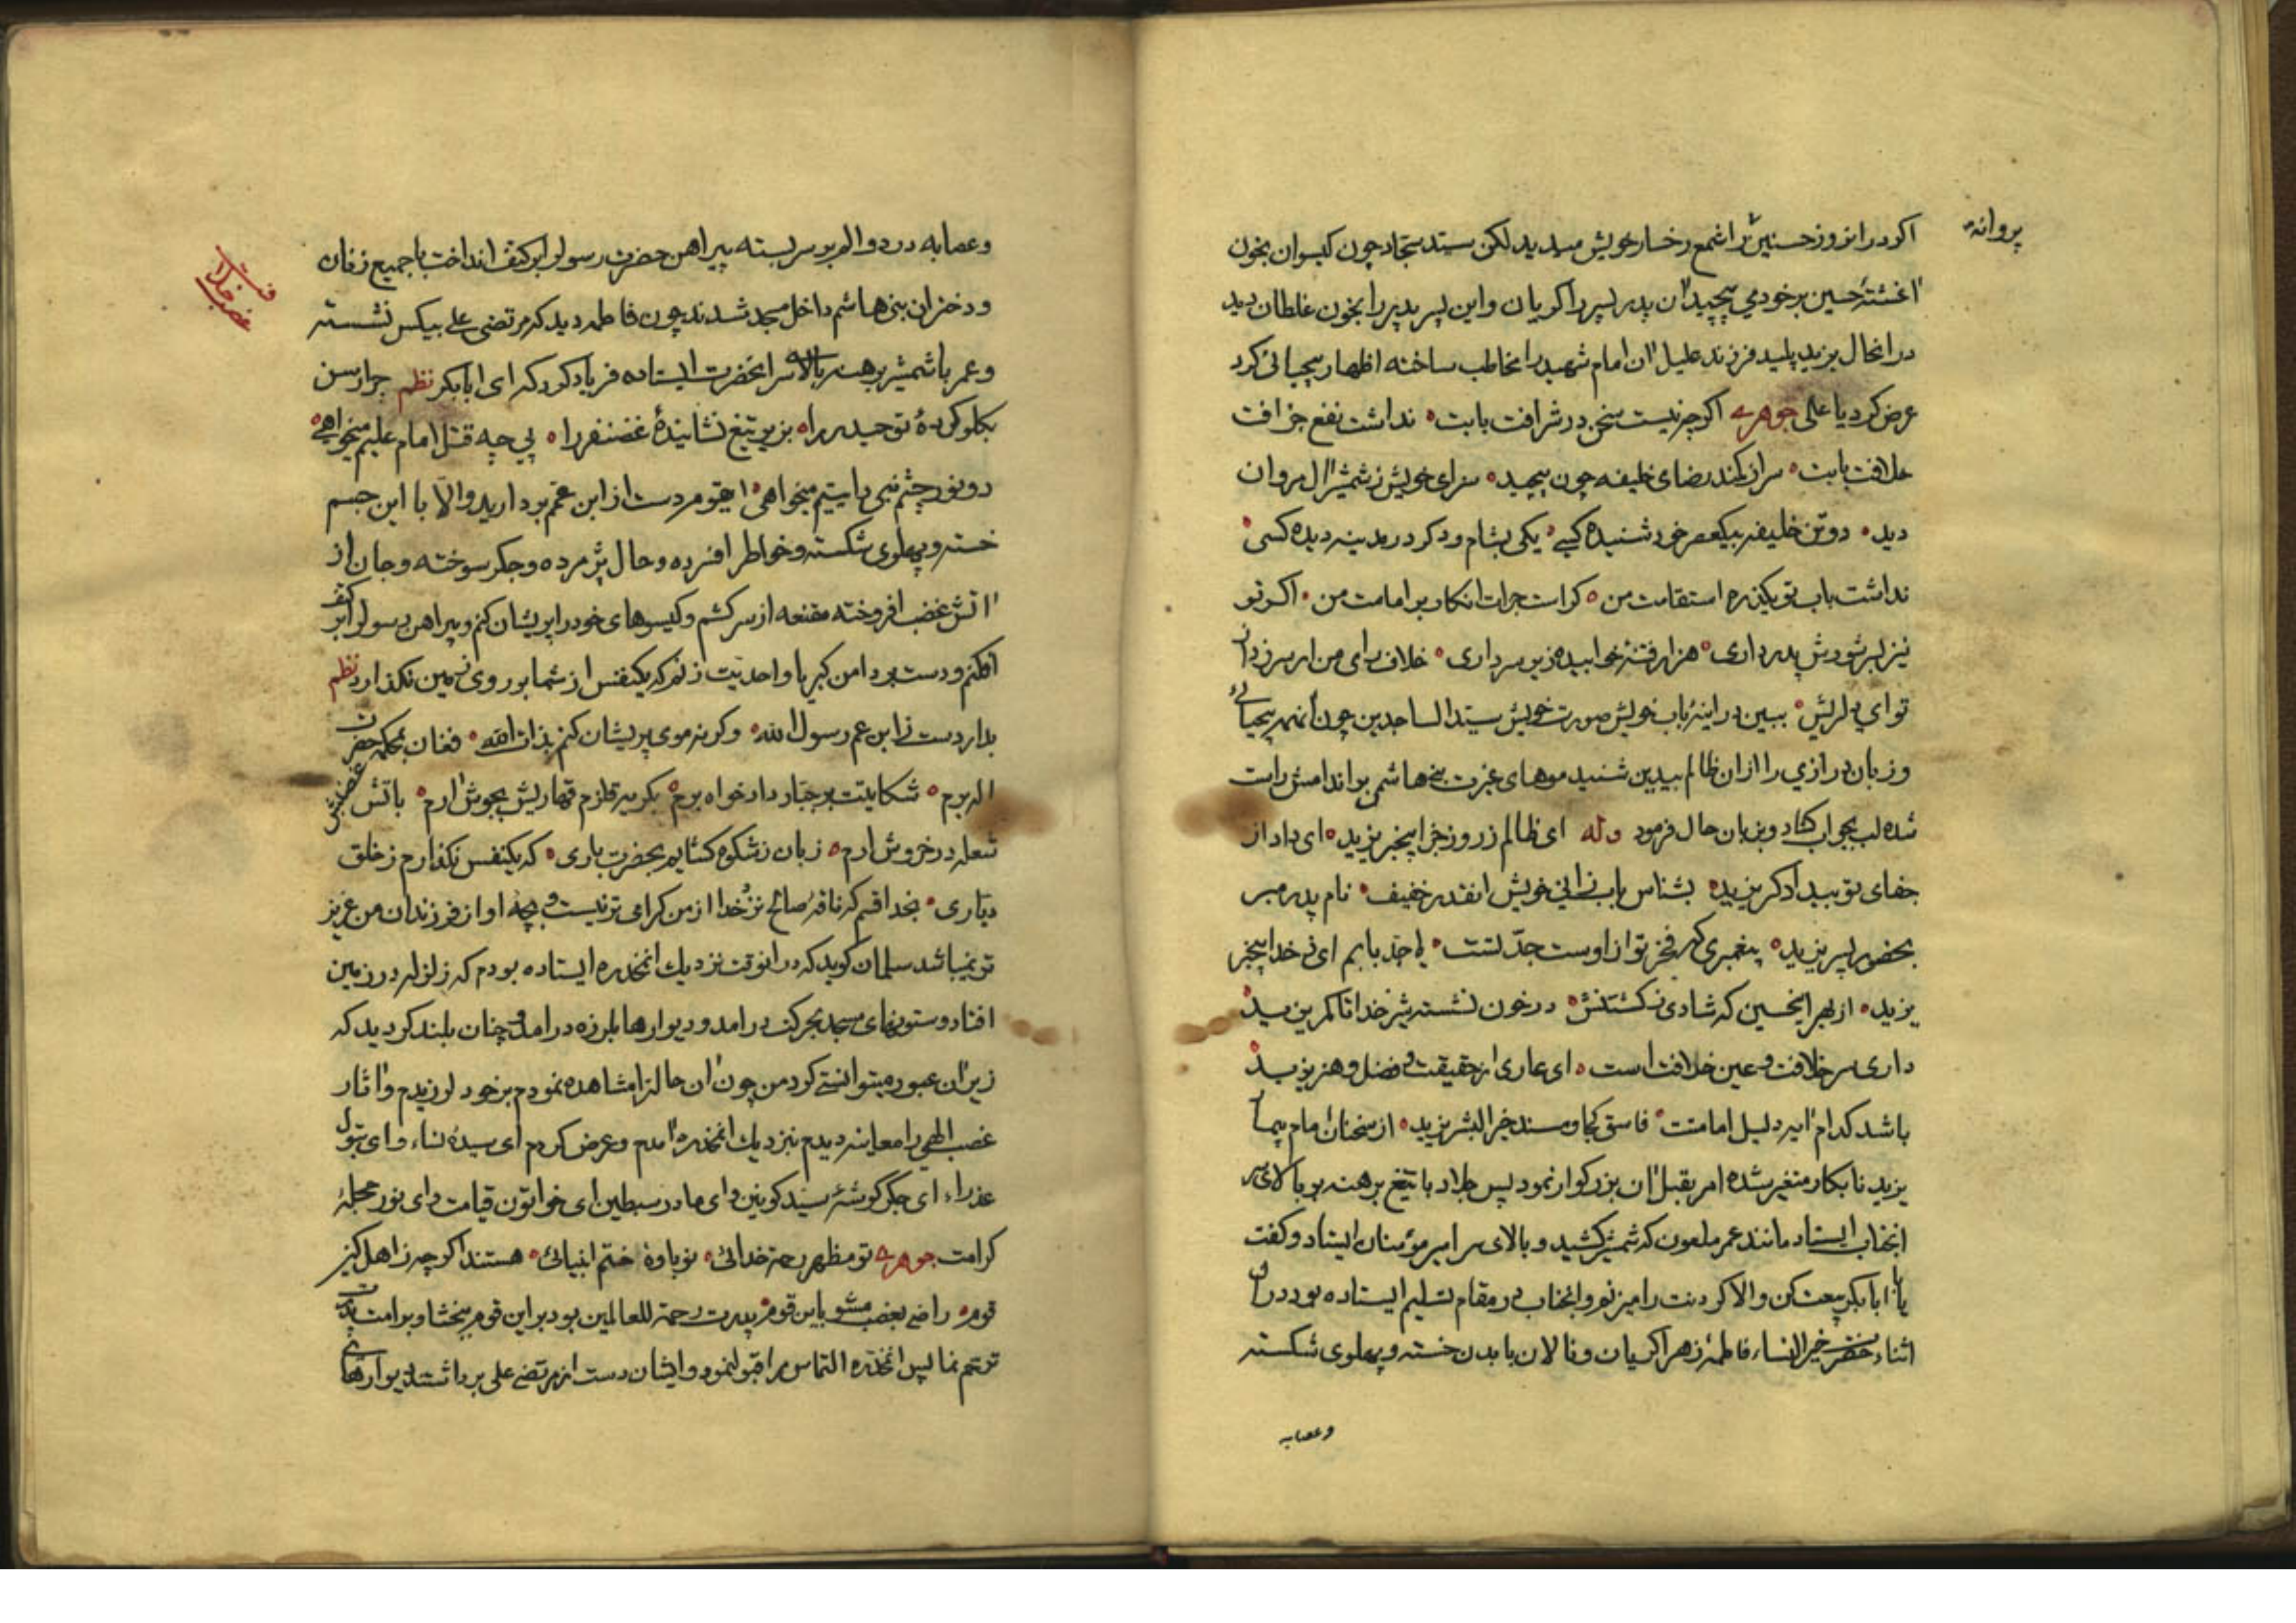 پروانه
اکر در انروز حسنین را شمع رخسار خویش میدید لکن سید سجاد چون کیسوان بخون
اغشتهٔ حسین بر خود می پیچید ان پدر پسر را کریان و این پسر پدر را بخون غلطان دید
در انحال یزید پلید فرزند علیل ان امام شهید را مخاطب ساخته اظهار بیحیائی کرد
عرض کرد یا علی جوهری اکرچه نیست سخن در شرافت بابت نداشت نفع خرافت
خلافت بابت سر از کمند رضای خلیفه چون پیچید سزای خویش ز شمشیر ال مروان
دید دو تن خلیفه بیکعصر خود شنیده کسی یکی بشام و دکر در مدینه دیده کسی
نداشت باب تو یکذره استقامت من کراست جرات انکار بر امامت من اکر تو
نیز بسر شورش پدر داری هزار فتنهٔ خوابیده زیر سر داری خلاف رای من ار سر زد از
تو ای دلریش ببین در اینهٔ باب خویش صورت خویش سید الساجدین چون انهمه بیحیائی
و زبان درازی را از ان ظالم بیدین شنید موهای عزت بنی هاشمی بر اندامش راست
شده لب بجواب کشاد و بزبان حال فرمود وله ای ظالم ز روز جزا بیخبر یزید ای داد از
جفای تو بیدادکر یزید بشناس باب زانی خویش انقدر خفیف نام پدر مبر
بحضور پسر یزید پیغمبری که فخر تو از اوست جد تست یا جد بابم ای ز خدا بیخبر
یزید از بهر انحسین که شادی ز کشتنش در خون نشسته شیر خدا تا کمر یزید
داری سر خلافت و عین خلافت است ای عاری از حقیقت و فضل و هنر یزید
باشد کدام ایه دلیل امامتت فاسق کجا و مسند خیر البشر یزید از سخنان امام بیمار
یزید نابکار متغیر شده امر بقتل ان بزرکوار نمود پس جلاد با تیغ برهنه بر بالای سر
انجناب ایستاد مانند عمر ملعون که شمشیر کشید و بالای سر امیر مؤمنان ایستاد و کفت
یا ابابکر بیعت کن و الا کردنت را میزنم و انجناب در مقام تسلیم ایستاده بود در ان
اثناء حضرت خیر النساء فاطمهٔ زهرا کریان و نالان با بدن خسته و پهلوی شکسته
وعصابه
وعصابه درد و الم بر سر بسته پیراهن حضرت رسول بر کتف انداخت با جمیع زنان
و دختران بنی هاشم داخل مسجد شدند چون فاطمه دید که مرتضی علی بیکس نشسته
و عمر با شمشیر برهنه بالای سر انحضرت ایستاده فریاد کرد که ای ابابکر نظم چرا رسن
بکلو کردهٔ تو حیدر را بزیر تیغ نشانیدهٔ غضنفر را پی چه قتل امام علیم میخواهی
دو نور چشم نبی را یتیم میخواهی ایقوم دست از ابن عمم بردارید والا با این جسم
خسته و پهلوی شکسته و خاطر افسرده و حال پژمرده و جکر سوخته و جان از
اتش غضب افروخته مقنعه از سر کشم و کیسوهای خود را پریشان کنم و پیراهن رسول بر کتف
افکنم و دست بر دامن کبریا و احدیت زنم که یکنفس از شما بر روی زمین نکذارد نظم
بدار دست ز ابن عم رسول الله و کرنه موی پریشان کنم بذات اله فغان بمحکمهٔ حضرت
اله برم شکایتت بر جبار دادخواه برم بکریه قلزم قهاریش بجوش ارم باتش غضبش
شعله در خروش ارم زبان ز شکوه کشایم بحضرت باری که یکنفس نکذارم ز خلق
دیاری بخدا قسم که ناقهٔ صالح نزد خدا از من کرامی تر نیست و بچهٔ او از فرزندان من عزیز
تر نمیباشد سلمان کوید که در انوقت نزدیک انمخدره ایستاده بودم که زلزله در زمین
افتاد و ستونهای مسجد بحرکت درامد و دیوارها بلرزه درامد و چنان بلند کردید که
زیر ان عبور میتوانستی کرد من چون ان حالرا مشاهده نمودم بر خود لرزیدم و اثار
غضب الهی را معاینه دیدم بنزدیک انمخدره امدم و عرض کردم ای سیدهٔ نساء و ای بتول
عذراء ای جکر کوشهٔ سید کونین و ای مادر سبطین ای خواتون قیامت و ای نور حجلهٔ
کرامت جوهری تو مظهر رحمت خدائی نوباوهٔ ختم انبیائی هستند اکرچه ز اهل کین
قوم راضی بغضب مشو باین قوم پدرت رحمة للعالمین بود بر این قوم ببخشا و بر امت پدرت
ترحم نما پس انمخدره التماس مرا قبول نمود و ایشان دست از مرتضی علی برداشتند دیوارهای